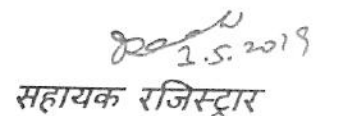 2.5.2019
सहायक रजिस्ट्रार